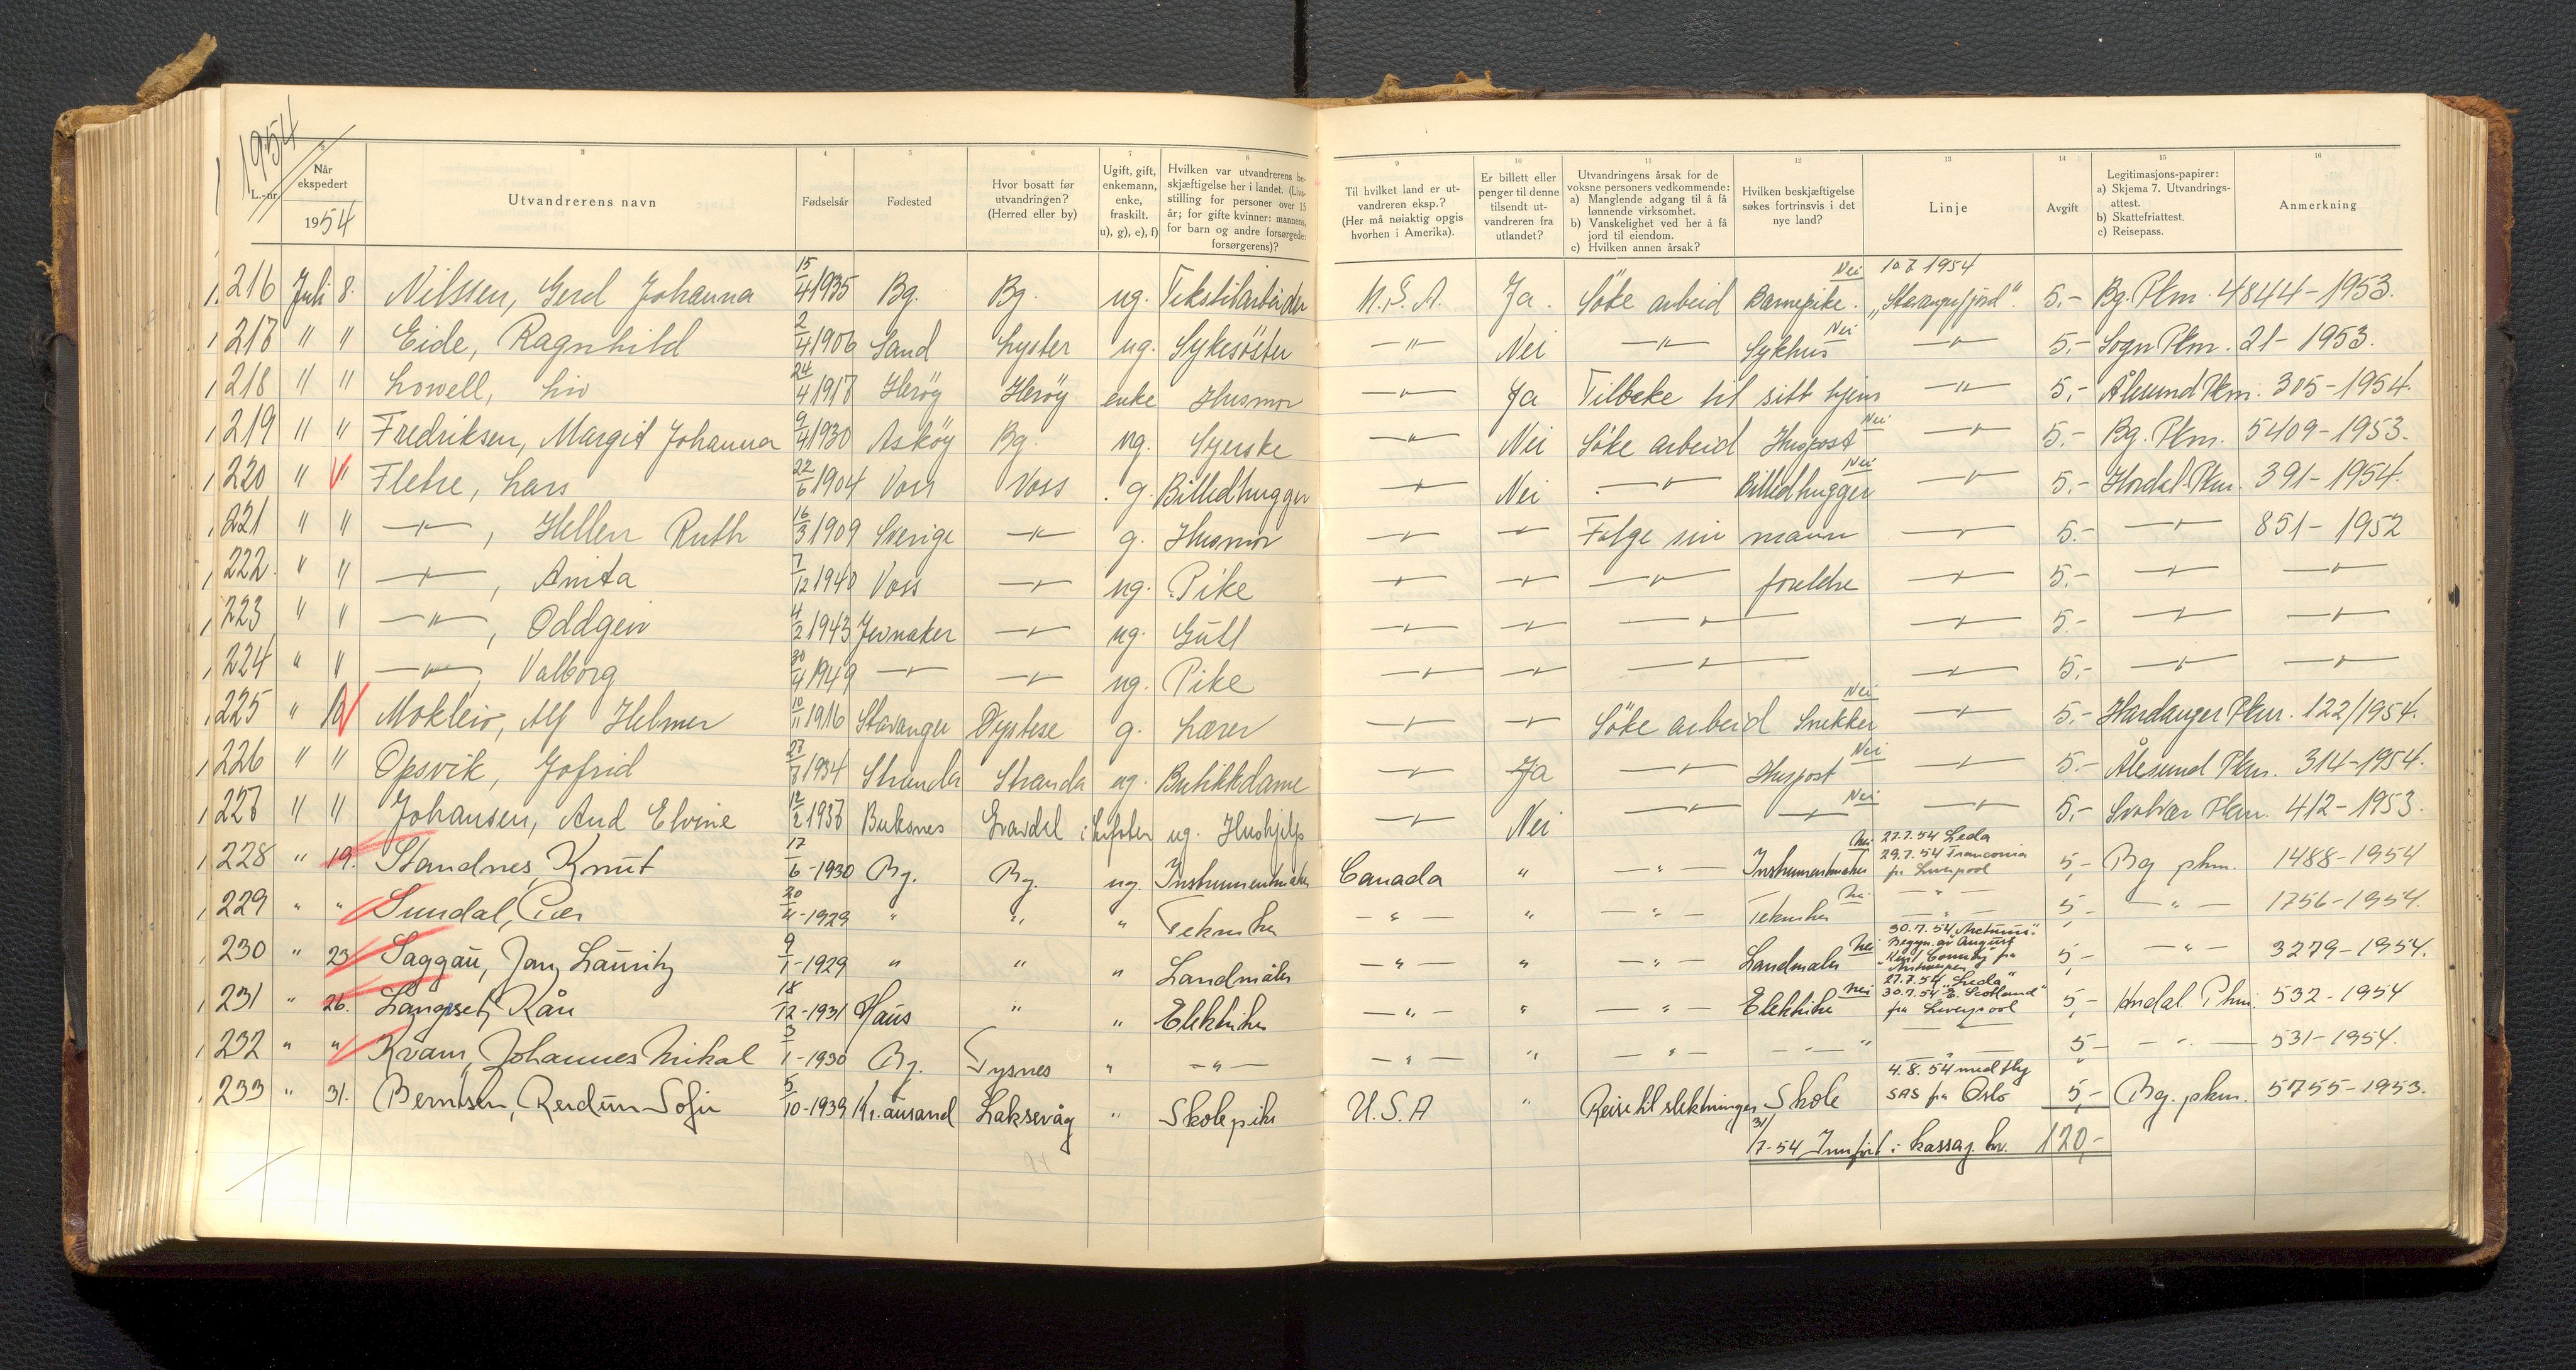 1954
L.-nr.
Når ekspedert
1954
3 Utvandrerens navn
4 Fødselsår
5 Fødested
6 Hvor bosatt før utvandringen? (Herred eller by)
7 Ugift, gift, enkemann, enke, fraskilt. u), g), e), f)
8 Hvilken var utvandrerens beskjæftigelse her i landet. (Livsstilling for personer over 15 år; for gifte kvinner: mannens, for barn og andre forsørgede: forsørgerens)?
9 Til hvilket land er utvandreren eksp.? (Her må nøiaktig opgis hvorhen i Amerika).
10 Er billett eller penger til denne tilsendt utvandreren fra utlandet?
11 Utvandringens årsak for de voksne personers vedkommende: a) Manglende adgang til å få lønnende virksomhet. b) Vanskelighet ved her å få jord til eiendom. c) Hvilken annen årsak?
12 Hvilken beskjæftigelse søkes fortrinsvis i det nye land?
13 Linje
14 Avgift
15 Legitimasjons-papirer: a) Skjema 7. Utvandrings-attest. b) Skattefriattest. c) Reisepass.
16 Anmerkning
216 Juli 8. Nilssen, Gerd Johanna 15/4 1935 Bg. Bg. ug. Tekstilarbeider U.S.A. Ja. Søke arbeid Barnepike. Nei 10.7 1954 „Stavangerfjord". 5.- Bg. Pkm. 4844-1953.
217 " " Eide, Ragnhild 2/4 1906 Sand Lyster ug. Sykesöster -"- Nei -"- Sykhus Nei -"- 5.- Sogn Pkm. 21-1953.
218 " " Lowell, Liv 24/4 1917 Heröy Heröy enke Husmor -"- Ja Tilbake til sitt hjem -"- 5,- Ålesund Pkm. 305-1954.
219 " " Fredriksen, Margit Johanna 9/4 1930 Asköy Bg. ug. Syerske -"- Nei Söke arbeid Huspost Nei -"- 5.- Bg. Pkm. 5409-1953.
220 " " Fletre, Lars 22/6 1904 Voss Voss g. Billedhugger -"- Nei -"- Billedhugger Nei -"- 5.- Hordal. Pkm. 391-1954.
221 " " -"-, Hellen Ruth 16/3 1909 Sverige -"- g. Husmor -"- -"- Følge sin mann -"- 5.- -"- 851-1952
222. " " -"-, Anita 7/12 1940 Voss -"- ug. Pike -"- -"- -"- foreldre -"- 5.- -"- -"-
223 " " -"-, Oddgeir 4/2 1943 Jevnaker -"- ug. Gutt -"- -"- -"- -"- 5.- -"- -"-
224 " " -"-, Valborg 30/4 1949 -"- -"- ug. Pike -"- -"- -"- -"- 5,- -"- -"-
225 " Mokleiv, Alf Helmer 10/11 1916 Stavanger g. Lærer -"- -"- Söke arbeid Snekker Nei -"- 5.- Hardanger Pkm. 122/1954.
226 " " Opsvik, Jofrid 1934 Stranda Stranda ug. Butikkdame -"- Ja -"- Huspost Nei -"- 5.- Ålesund Pkm. 314-1954.
227 " " Johansen, Aud Elvine 12/2 1937 Buksnes Gravdal i Lofoten ug. Hushjelp -"- Nei -"- -"- Nei -"- 5,- Svolvær Pkm. 412-1953.
228 " 19. Standnes, Knut 17/6-1930 Bg. Bg. ug. Instrumentmaker Canada " -"- Instrumentmaker Nei 27.7.54 Leda 29.7.54 Franconia fra Liverpool 5,- Bg pkm. 1488-1954
229 " " Sundal, Per 20/4-1929 " " " Tekniker -"- " -"- Tekniker Nei -"- 5,- -"- 1756-1954.
230 " 23 Saggau, Jan Lauritz 9/1-1929 " " " Landmåler -"- " -"- Landmåler Nei 30.7.54 Begyn. av August fra Antwerpen 5,- -"- 3279-1954.
231 " 26. Langset, Kåre 18/12-1931 Haus " " Elektriker -"- " -"- Elektriker Nei 27.7.54 „Leda" 30.7.54 E. Scotland" fra Liverpool 5,- Hordal Pkm. 532-1954
232 " " Kvam, Johannes Mikal 3/1-1930 Bg. Tysnes " -"- -"- " -"- -"- -"- 5,- -"- 531-1954.
233 " 31. Berntsen, Reidun Sofie 5/10-1939 Kr.ansand Laksevåg " Skolepike U.S.A " Reise til slektninger Skole 4.8.54 med fly SAS fra Oslo 5,- Bg. pkm. 5755-1953.
31/7-54 Innført i kassaj. kr. 120,-